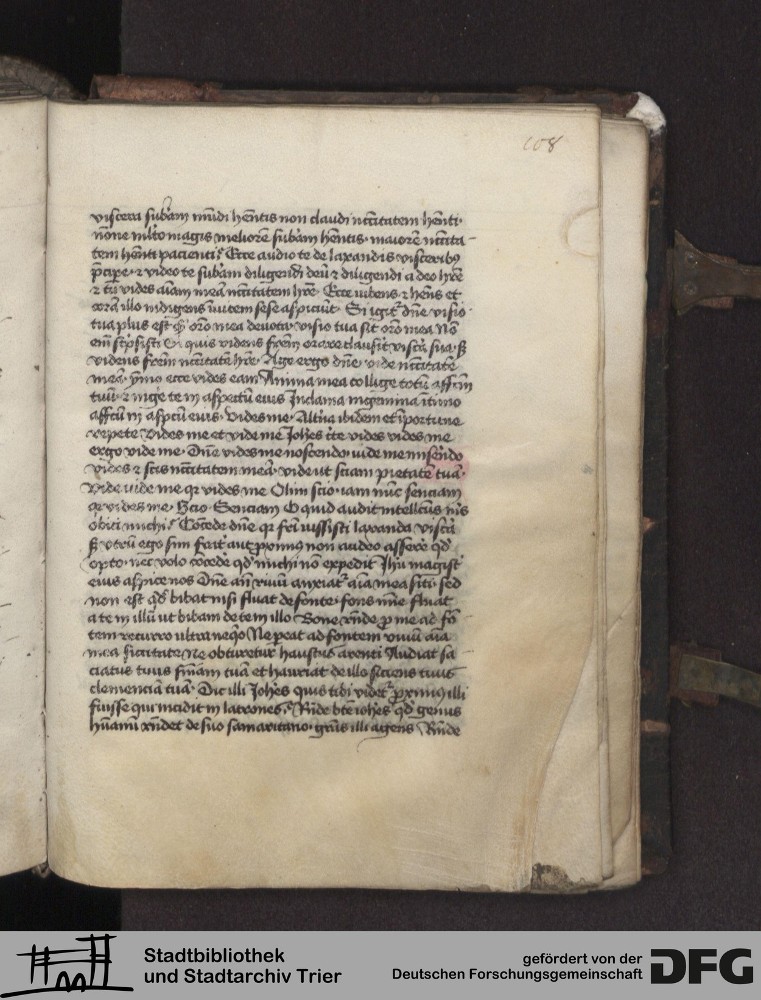 108
viscera subam mudi hentis non claudi nccitatem henti.
none mlto magis meliore subam hentis. maiore nccita
tem henti pacienti? Ecce audio te de laxandis visceribus
pcipe. et video te subam diligendi deu et diligendi a deo hre
et tu vides aiam mea nccitatem hre. Ecce iubens et hens et
illo indigens inuicem sese aspiciut. Si igit dne visio
tua plus est oro mea deuota. visio tua sit oro mea No
em scpsisti Et quis videns frem clausit viscera sua. S
videns frem nccitate hre. Ago ergo dne. vide nccitate
mea. ymo ecce vides eam Anima mea collige totu affcm
tuu. et inge te in aspectu eius Inclama ingemina itimo
affcu in aspcu eius. Vides me. Altius ibidem et iportune
repete Vides me et vide me Johes cte vides vides me
ergo vide me. Dne vides me noscendo. vide me miserendo
vides et scis nccitatem mea. vide ut sciam pietate tua.
Vide vide me qr vides me Olim scio. iam nuc senciam
qr vides me. Scio Senciam O quid audit intellectus
obici michi? Cocede dne qr fri iussisti laxanda viscera
S utru ego sim frater aut proximus non audeo asserere qd
opto. nec volo cocede qd michi no expedit Jhu magister
eius aspice nos Dne viuu anxiat aia mea siti. sed
non est qd bibat nisi fluat de fonte. fons fluat
a te in illu ut bibam de te in illo Bone rnde p me ad fo
tem recurro ultra nequeo Ne pereat ad fontem viuu aia
mea siccitate Ne obturetur haustus arenti Audiat sa
ciatus tuus fmam tua et hauriat de illo siciens tuus
clemencia tua. Dic illi Johes quis tibi videt proximus illi
fuisse qui incidit in latrones? Rnde bte iohes qd genus
humanu rndet de suo samaritano. gras illi agens Rnde
Stadtbibliothek
und Stadtarchiv Trier
gefördert von der
Deutschen Forschungsgemeinschaft
DFG